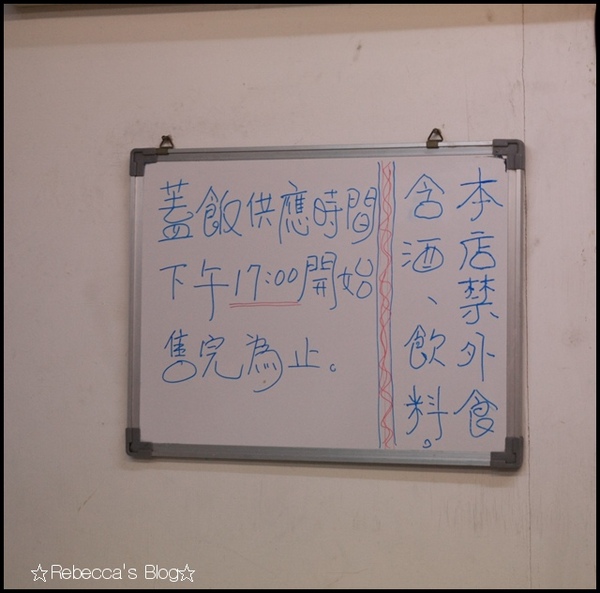 蓋飯供應時間
下午17:00開始
售完為止。
本店禁外食
含酒、飲料。
☆Rebecca's Blog☆